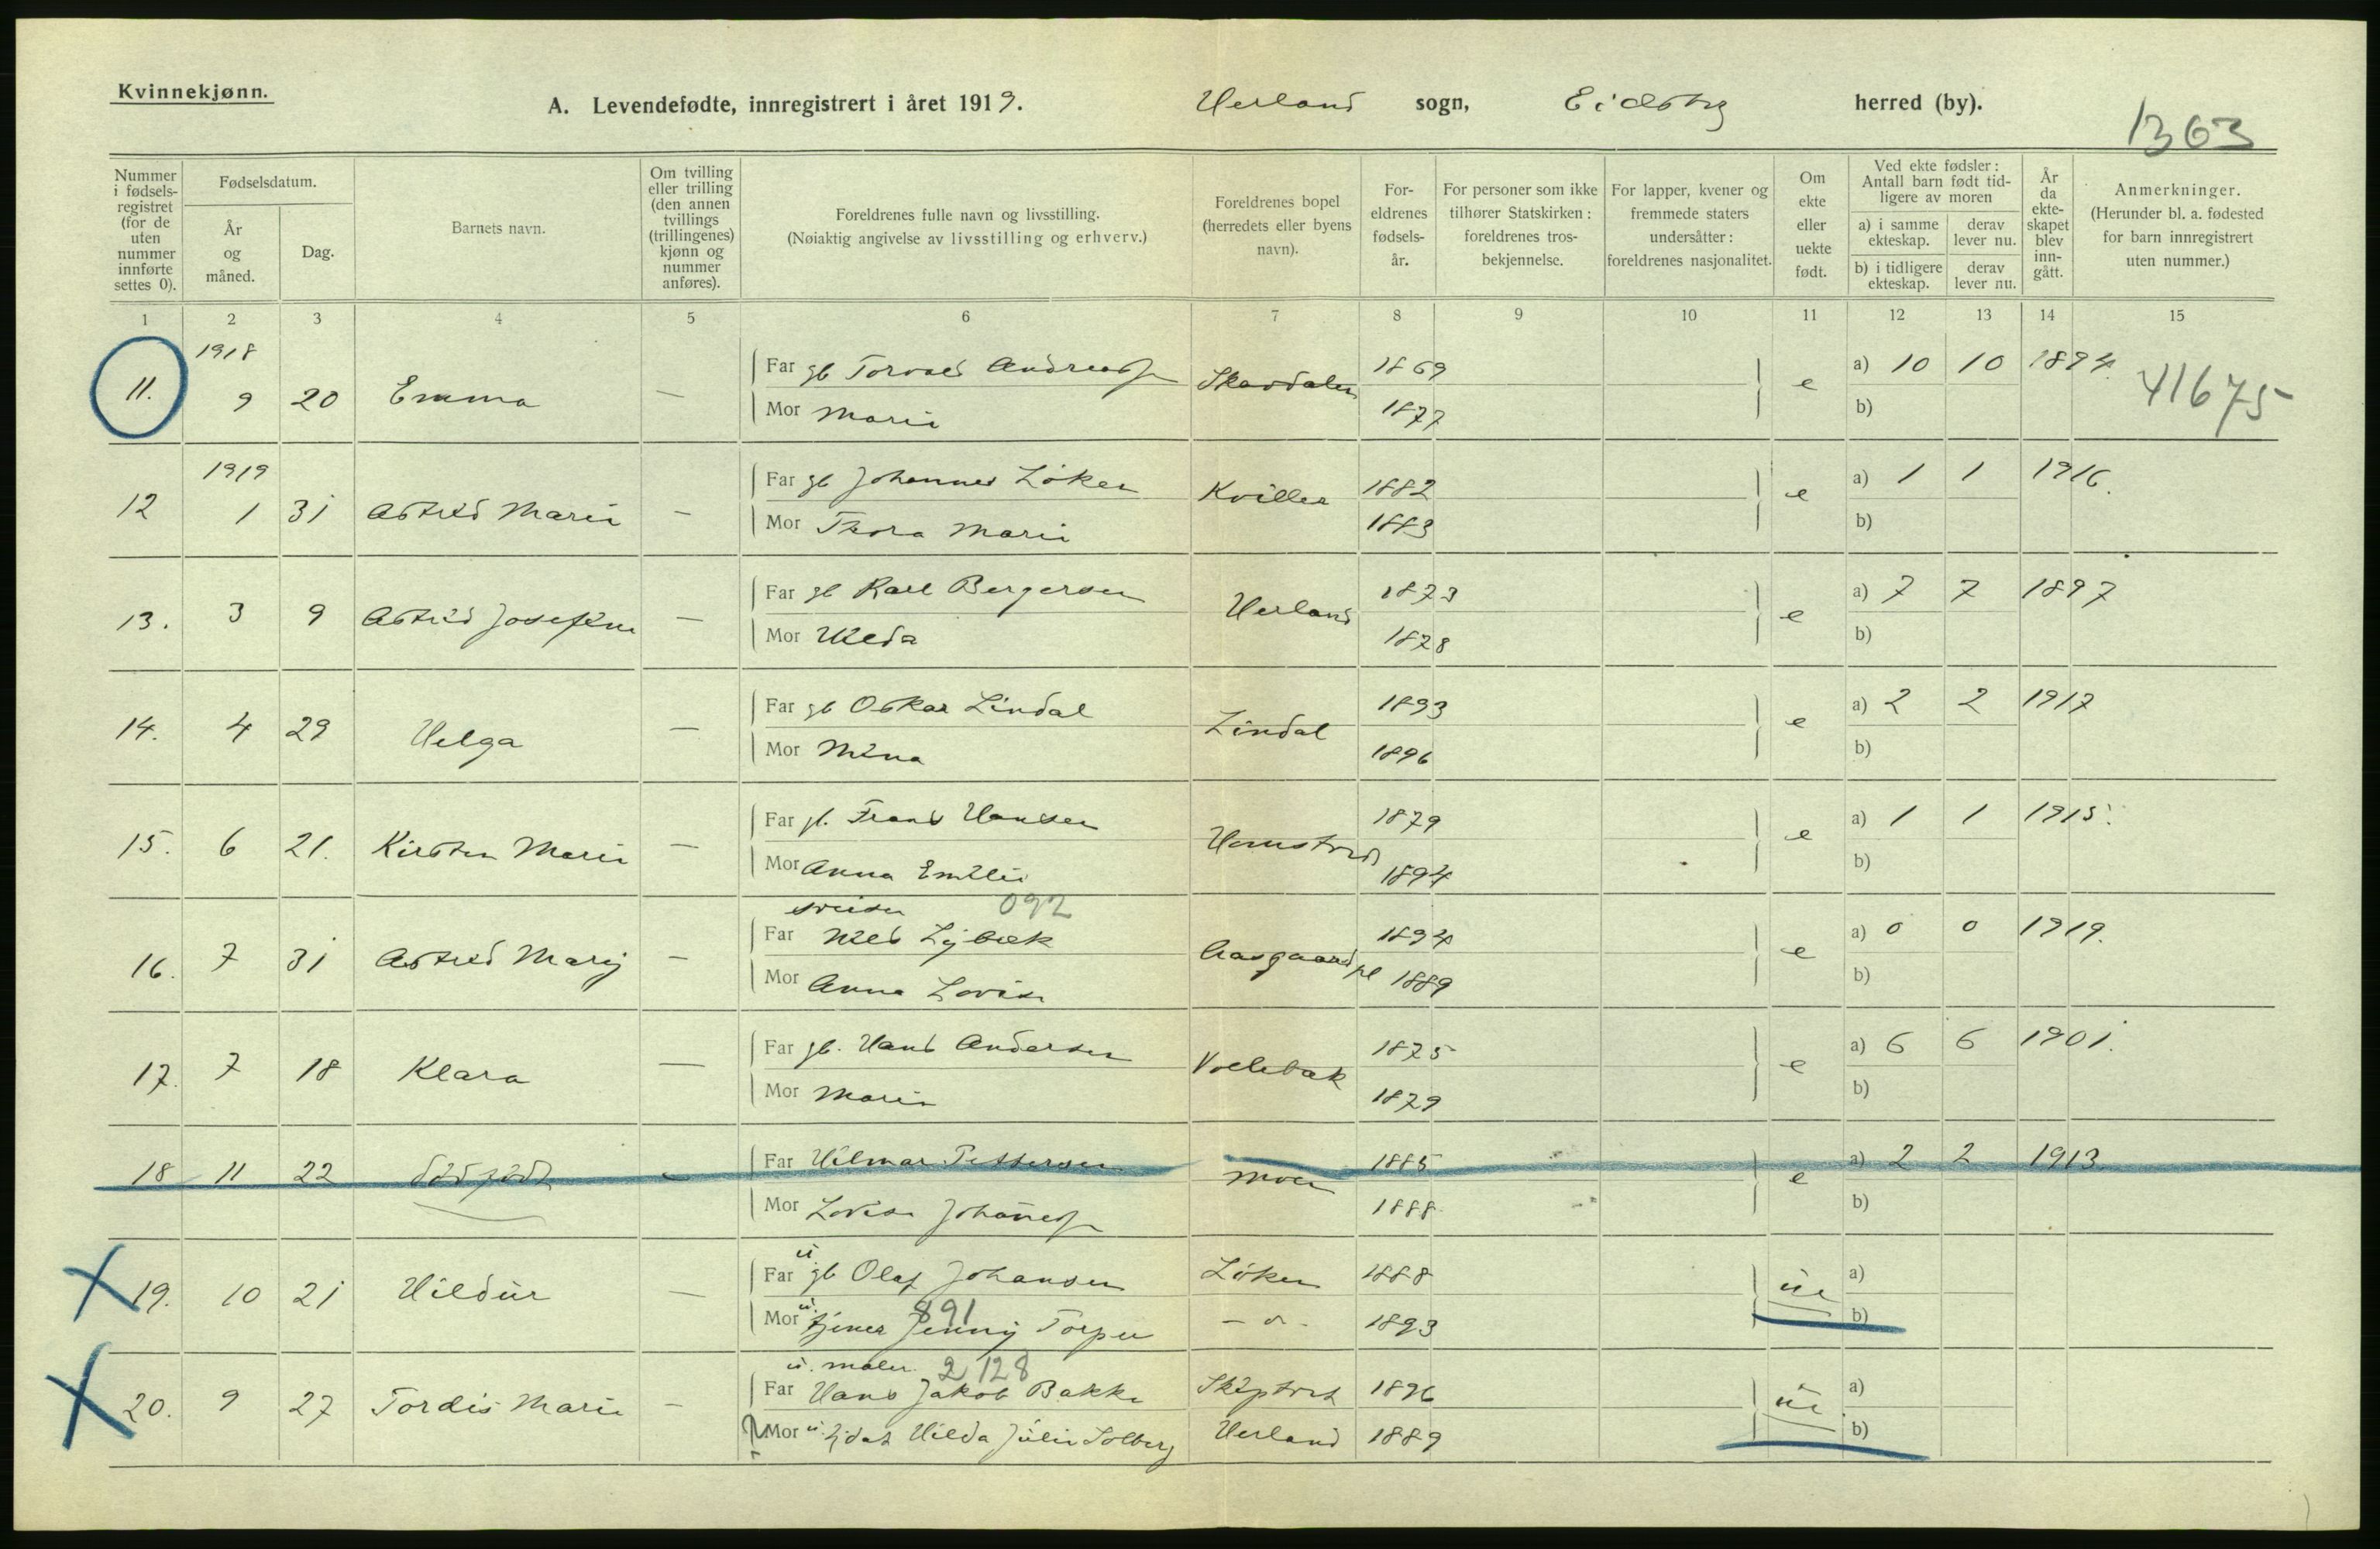 Kvinnekjønn.
A. Levendefødte, innregistrert i året 1919. Herland sogn, Eidsbg herred (by).
1363
Nummer i fødsels-registret (for de uten nummer innførte settes 0).
Fødselsdatum.
År og måned.
Dag.
Barnets navn.
Om tvilling eller trilling (den annen tvillings (trillingenes) kjønn og nummer anføres).
Foreldrenes fulle navn og livsstilling.
(Nøiaktig angivelse av livsstilling og erhverv.)
Foreldrenes bopel (herredets eller byens navn).
For-eldrenes fødsels-år.
For personer som ikke tilhører Statskirken: foreldrenes tros-bekjennelse.
For lapper, kvener og fremmede staters undersåtter: foreldrenes nasjonalitet.
Om ekte eller uekte født.
Ved ekte fødsler: Antall barn født tid-ligere av moren
a) i samme ekteskap. derav lever nu.
b) i tidligere ekteskap. derav lever nu.
År da ekte-skapet blev inn-gått.
Anmerkninger.
(Herunder bl. a. fødested for barn innregistrert uten nummer.)
1 2 3 4 5 6 7 8 9 10 11 12 13 14 15
1918
11. 9 20 Emma — Far gb Torvald Andreass Skavdalen 1869 e a) 10 10 1894.
Mor Marie 1877 b)
41675
1919
12 1 31 Astrid Marie — Far gb Johannes Løken Kviller 1882 e a) 1 1 1916.
Mor Thora Marie 1883 b)
13. 3 9 Astrid Josefine — Far gb Karl Bergersen Herland 1873 e a) 7 7 1897
Mor Hilda 1878 b)
14. 4 29 Helga — Far gb Oskar Lindal Lindal 1893 e a) 2 2 1917
Mor Mina 1896 b)
15. 6 21. Kirsten Marie — Far gb. Frans Hansen 1879 e a) 1 1 1915.
Mor Anna Emilie 1894 b)
sveiser 092
16. 7 31 Astrid Mary — Far Nils Lybæk Aasgaard pl 1894 e a) 0 0 1919.
Mor Anna Lovise 1889 b)
17. 7 18 Klara — Far gb. Hans Andersen Vollebæk 1875 e a) 6 6 1901.
Mor Marie 1879 b)
18 11 22 dødfødt — Far Hilmar Pettersen Moen 1885 e a) 2 2 1913
Mor Lovise Johanness 1888 b)
19. 10 21 Hildur — Far u gb Olaf Johansen Løken 1888 ue a)
891
Mor u. tjener Jenny Torper — " — 1893 b)
u. maler 2128
20. 9 27 Tordis Marie — Far Hans Jakob Bakke 1896 ue a)
Mor u. gdat Hilda Julie Solberg Herland 1889 b)